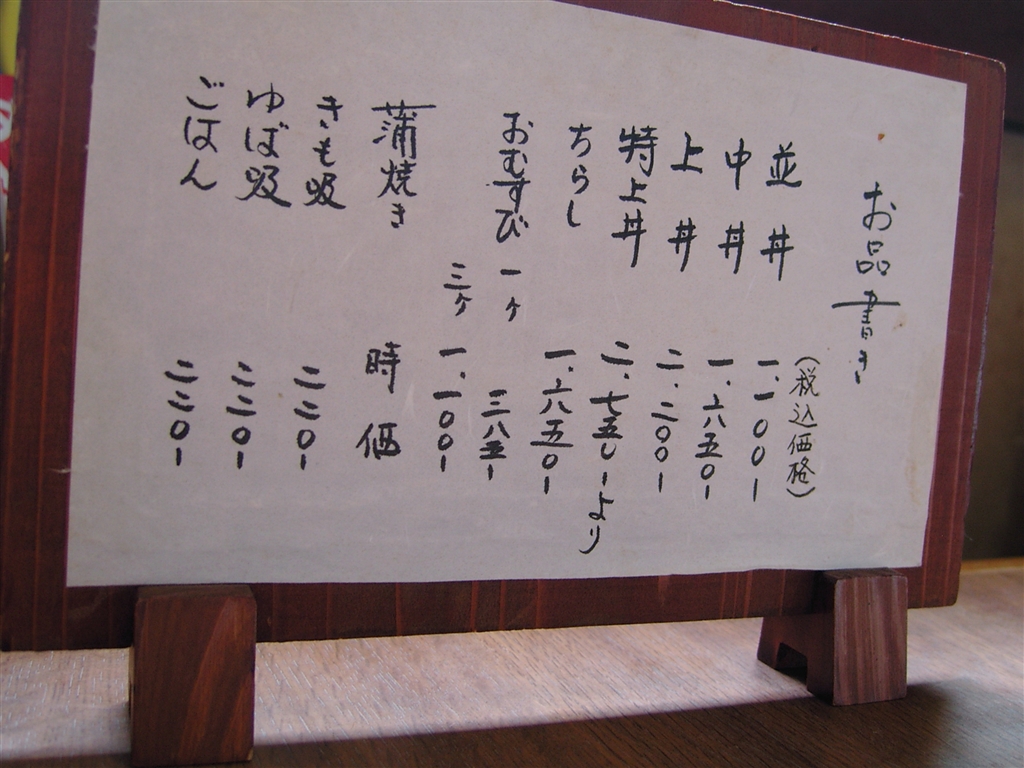 お品書き
(税込価格)
並丼 一、一〇〇-
中丼 一、六五〇-
上丼 二、二〇〇-
特上丼 二、七五〇-より
ちらし 一、六五〇-
おむすび 一ヶ 三八五-
三ヶ 一、一〇〇-
蒲焼き 時価
きも吸 二二〇-
ゆば吸 二二〇-
ごはん 二二〇-